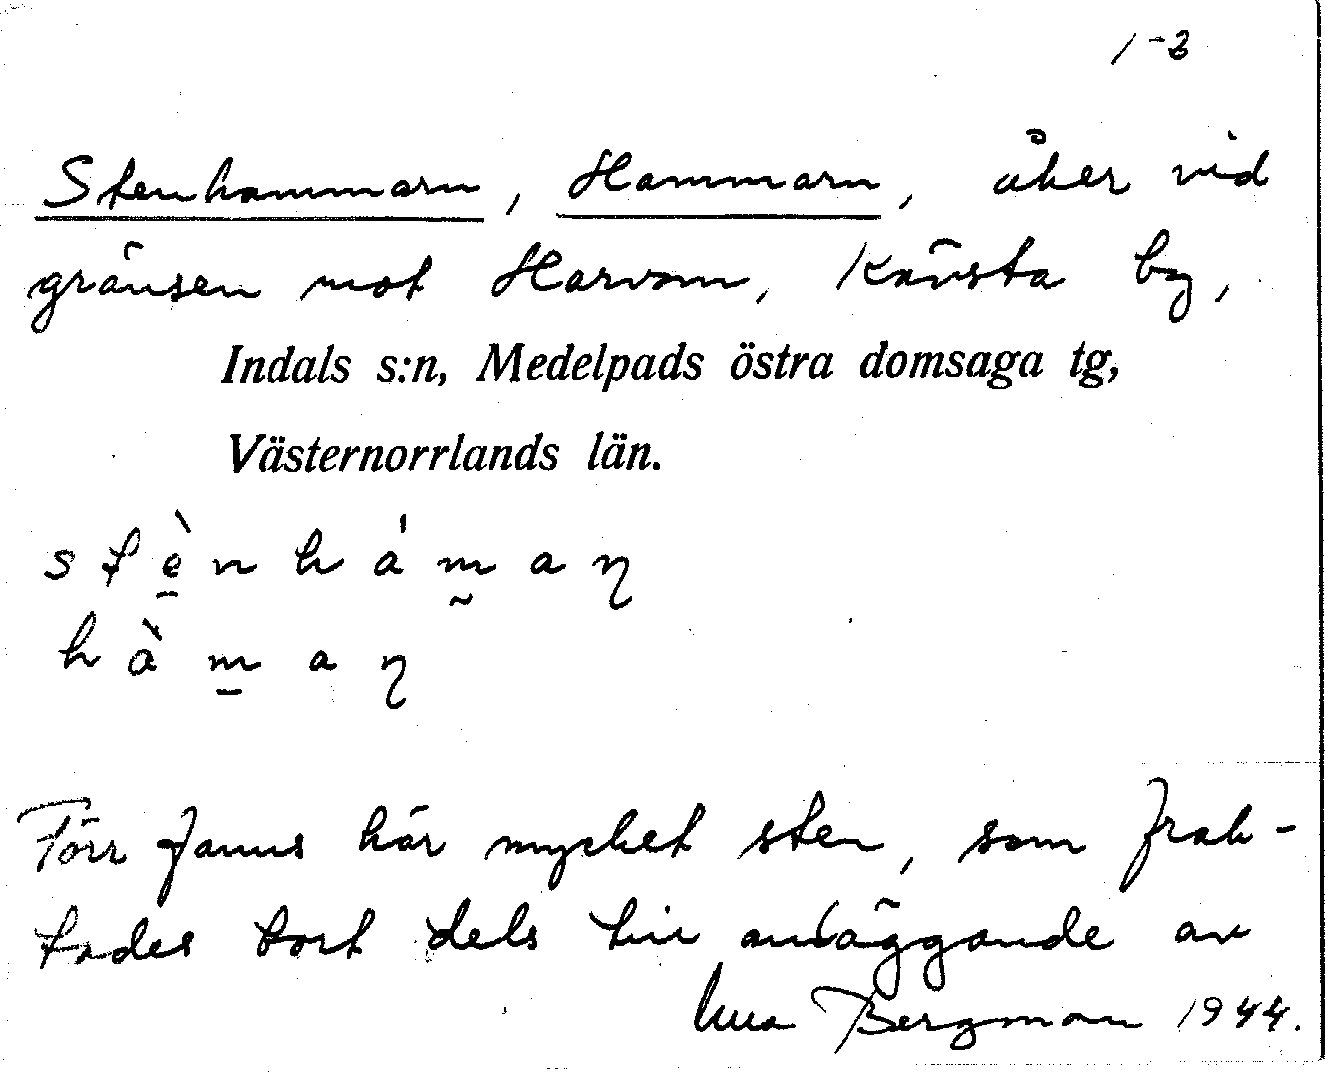 1-2
Stenhammarn, Hammarn, åker vid
gränsen mot Harvom, Kävsta by,
Indals s:n, Medelpads östra domsaga tg,
Västernorrlands län.
stènháman
hàman
Förr fanns här mycket sten, som frak-
tades bort dels till anläggande av
Bergman 1944.